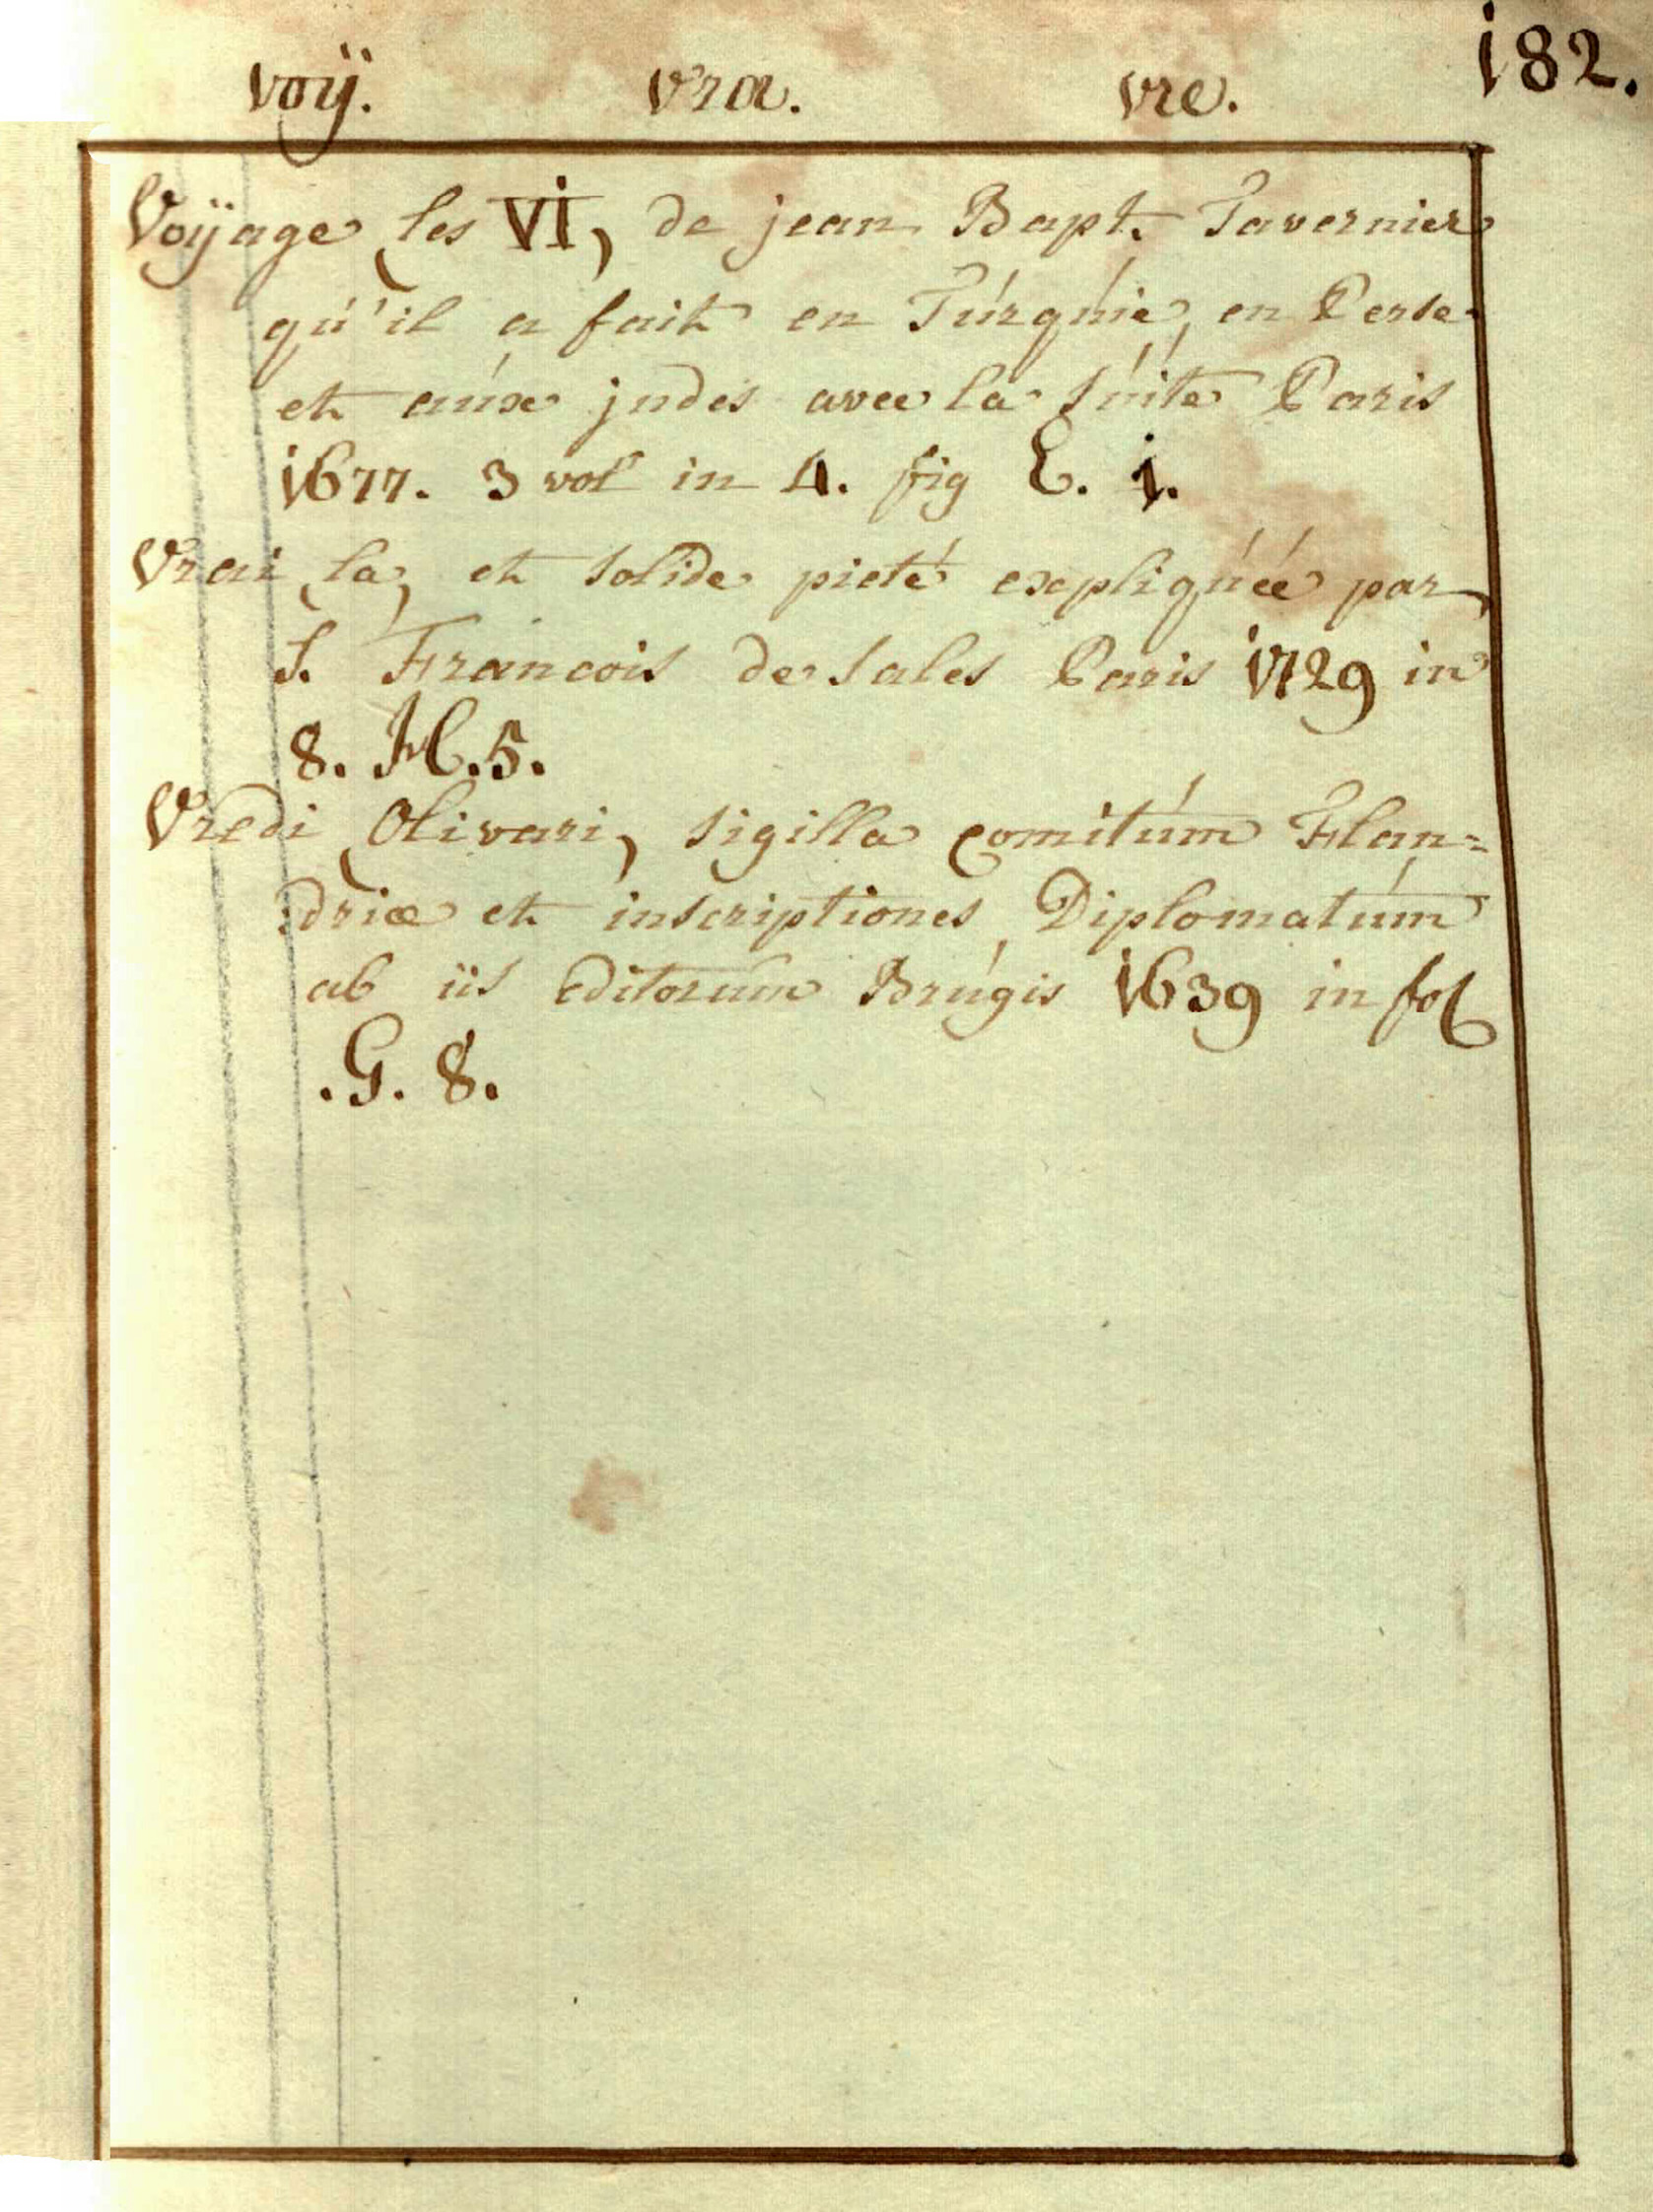 voÿ. vra. vre. 182.
Voÿage (les VI, de jean Bapt. Tavernier
qu'il a fait en Turquie, en Perse
et aux jndes avec la suite Paris
1677. 3 vol in 4. fig E. 1.
Vrai (la) et solide pieté expliquéé par
S. Francois de sales Paris 1729 in
8. H. 5.
Vredi (Olivari) sigilla comitum Flan=
:driæ et inscriptiones Diplomatum
ab iis editorum Brugis 1639 in fol
.G. 8.